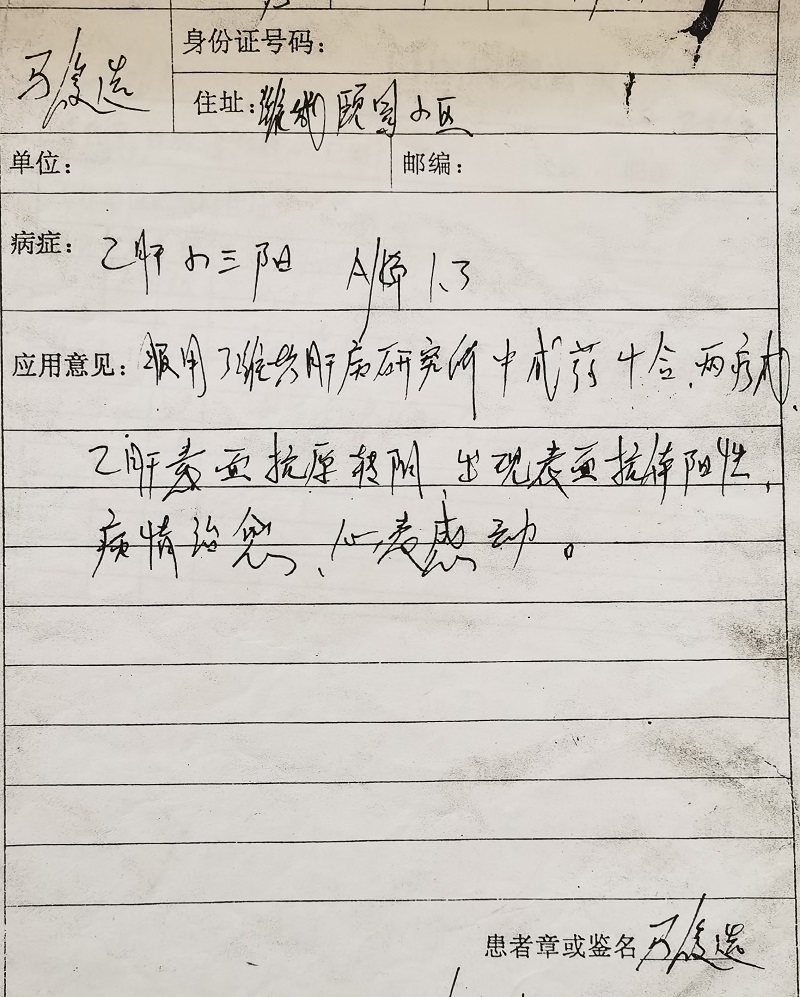 身份证号码：
马俊选
住址：潍城颐园小区
单位： 邮编：
病症：乙肝小三阳
应用意见：服用了潍坊肝病研究所中成药十合、两疗程，
乙肝表面抗原转阴，出现表面抗体阳性，
病情治愈、心表感动。
患者章或鉴名 马俊选